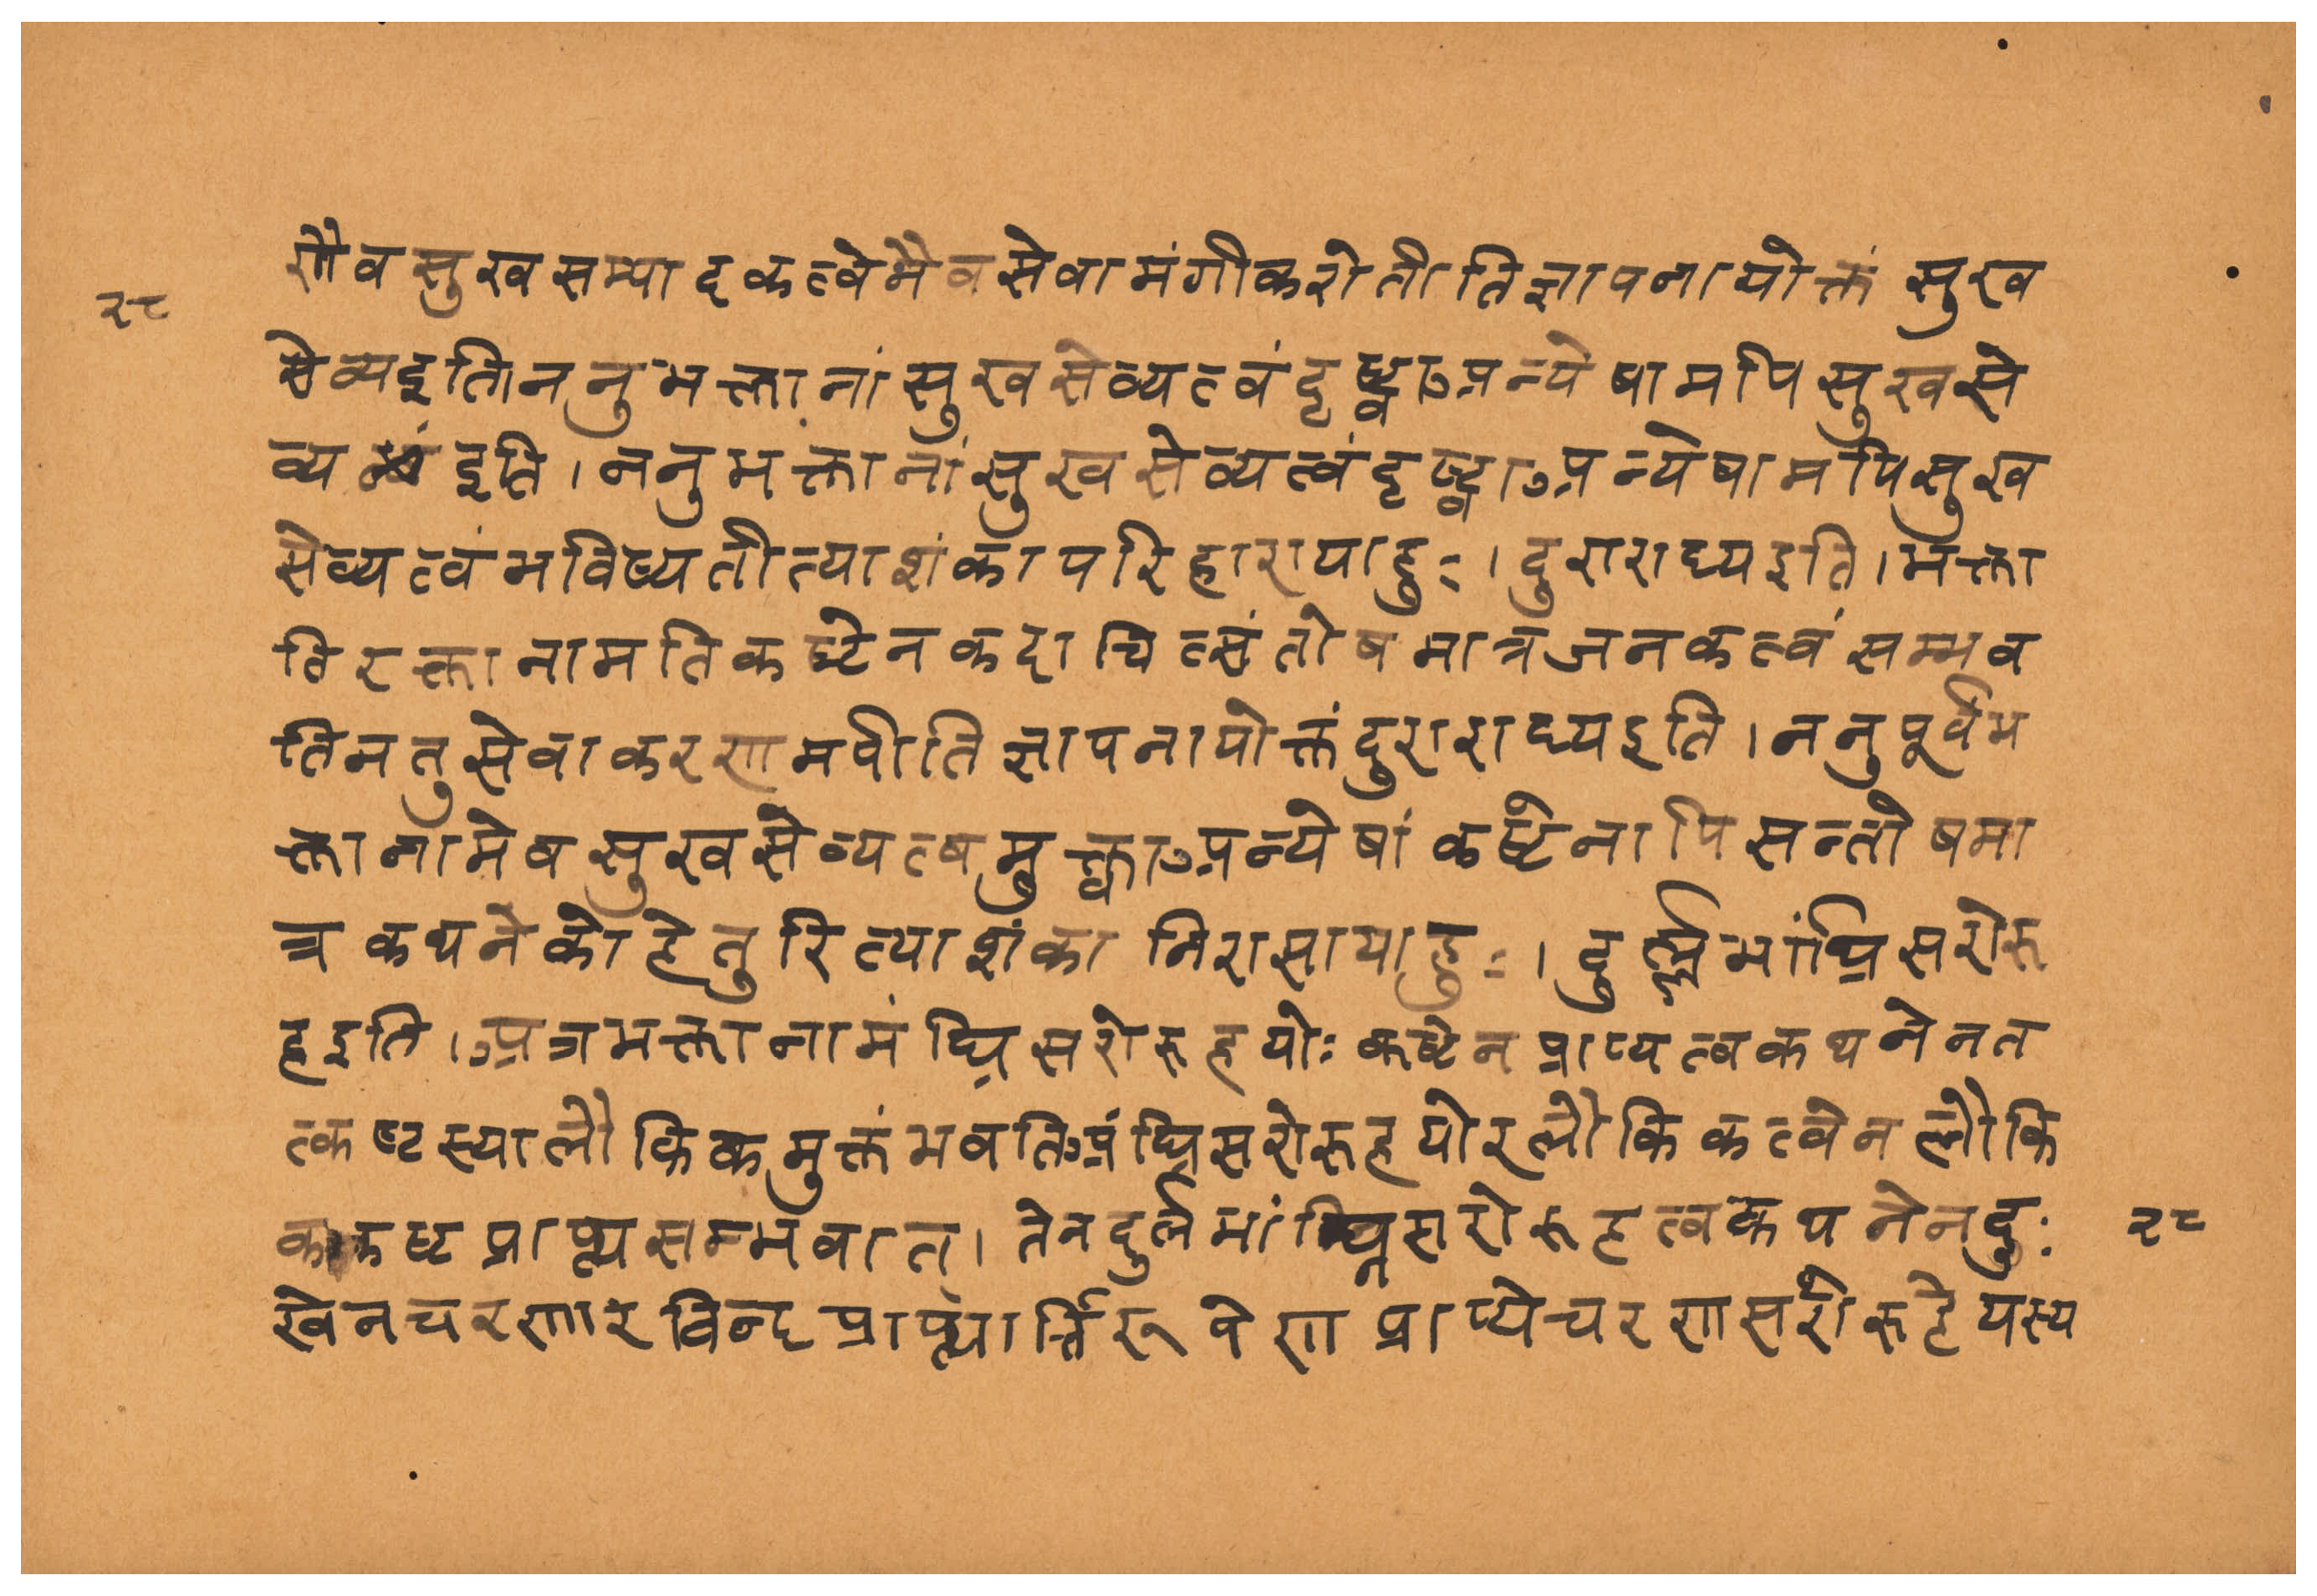 णैव सुखसम्पादकत्वेनैव सेवामंगीकरोतीति ज्ञापनायोक्तं सुख
२८
सेव्य इति। ननु भक्तानां सुखसेव्यत्वं दृष्ट्वा अन्येषामपि सुखसे
व्य इति । ननु भक्तानां सुखसेव्यत्वं दृष्ट्वा अन्येषामपि सुख
सेव्यत्वं भविष्यतीत्याशंकापरिहारायाहुः । दुराराध्य इति । भक्ता
तिरक्तानामतिकष्टेन कदाचित्संतोषमात्रजनकत्वं सम्भव
ति न तु सेवाकरणमपीति ज्ञापनायोक्तं दुराराध्य इति । ननु पूर्वं भ
क्तानामेव सुखसेव्यत्वमुक्त्वा अन्येषां कष्टेनापि सन्तोषमा
त्र कथने को हेतुरित्याशंका निरासायाहुः । दुर्ल्लभांघ्रिसरोरु
ह इति । अत्र भक्तानामंघ्रिसरोरुहयोः कष्टेन प्राप्यत्वकथनेन त
त्कष्टस्यालौकिकमुक्तं भवति अंघ्रिसरोरुहयोरलौकिकत्वेन लौकि
ककष्टप्राप्त्यसम्भवात् । तेन दुर्लभांघ्रिसरोरुहत्वकथनेन दुः
२८
खेन चरणारविन्दप्राप्त्यार्त्तिरूपेण प्राप्ये चरणसरोरुहे यस्य